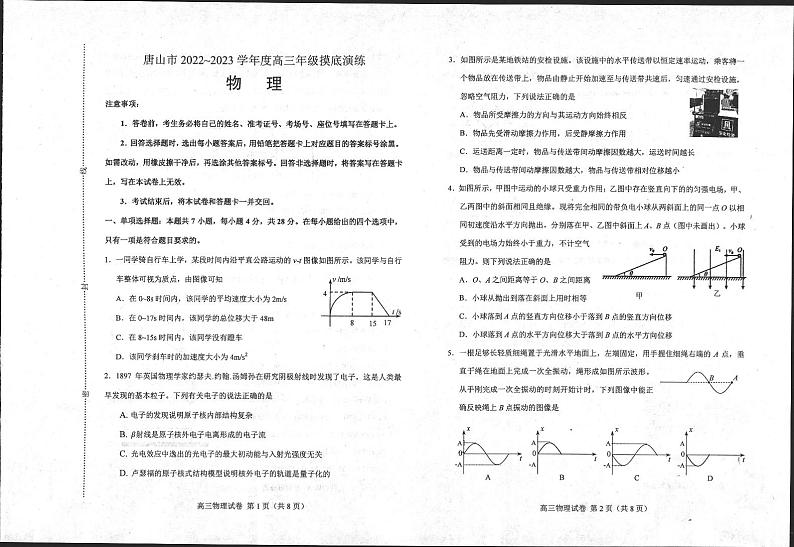 唐山市 2022~2023 学年度高三年级摸底演练
物 理
注意事项：
1．答卷前，考生务必将自己的姓名、准考证号、考场号、座位号填写在答题卡上。
2．回答选择题时，选出每小题答案后，用铅笔把答题卡上对应题目的答案标号涂黑。
如需改动，用橡皮擦干净后，再选涂其他答案标号。回答非选择题时，将答案写在答题卡
上，写在本试卷上无效。
3．考试结束后，将本试卷和答题卡一并交回。
一、单项选择题：本题共 7 小题，每小题 4 分，共 28 分。在每小题给出的四个选项中，
只有一项是符合题目要求的。
1．一同学骑自行车上学，某段时间内沿平直公路运动的 v-t 图像如图所示，该同学与自行
车整体可视为质点，由图像可知
v /m/s
4
8 15 17 t /s
A．在 0~8s 时间内，该同学的平均速度大小为 2m/s
B．在 0~17s 时间内，该同学的总位移大于 48m
C．在 8~15s 时间内，该同学没有蹬车
D．该同学刹车时的加速度大小为 4m/s²
2．1897 年英国物理学家约瑟夫.约翰.汤姆孙在研究阴极射线时发现了电子，这是人类最
早发现的基本粒子。下列有关电子的说法正确的是
A. 电子的发现说明原子核内部结构复杂
B. β射线是原子核外电子电离形成的电子流
C. 光电效应中逸出的光电子的最大初动能与入射光强度无关
D. 卢瑟福的原子核式结构模型说明核外电子的轨道是量子化的
高三物理试卷 第 1 页（共 8 页）
线
封
密
3．如图所示是某地铁站的安检设施。该设施中的水平传送带以恒定速率运动，乘客将一
个物品放在传送带上，物品由静止开始加速至与传送带共速后，匀速通过安检设施。
忽略空气阻力，下列说法正确的是
A．物品所受摩擦力的方向与其运动方向始终相反
B．物品先受滑动摩擦力作用，后受静摩擦力作用
C．运送距离一定时，物品与传送带间动摩擦因数越大，运送时间越长
D．物品与传送带间动摩擦因数越大，物品与传送带相对位移越小
4．如图所示，甲图中运动的小球只受重力作用；乙图中存在竖直向下的的匀强电场，甲、
乙两图中的斜面相同且绝缘。现将完全相同的带负电小球从两斜面上的同一点 O 以相
同初速度沿水平方向抛出，分别落在甲、乙图中斜面上 A、B 点（图中未画出）。小球
受到的电场力始终小于重力，不计空气
阻力。则下列说法正确的是
v₀ O θ
E₁ v₀ O θ
甲 乙
A．O、A 之间距离等于 O、B 之间距离
B．小球从抛出到落在斜面上用时相等
C．小球落到 A 点的竖直方向位移小于落到 B 点的竖直方向位移
D．小球落到 A 点的水平方向位移大于落到 B 点的水平方向位移
5．一根足够长轻质细绳置于光滑水平地面上，左端固定，用手握住细绳右端的 A 点，垂
直于绳在地面上完成一次全振动，绳形成如图所示波形。
从手刚完成一次全振动的时刻开始计时，下列图像中能正
确反映绳上 B 点振动的图像是
B A
x A 0 -A t
x A 0 -A t
x A 0 -A t
x A 0 -A t
A B C D
高三物理试卷 第 2 页（共 8 页）